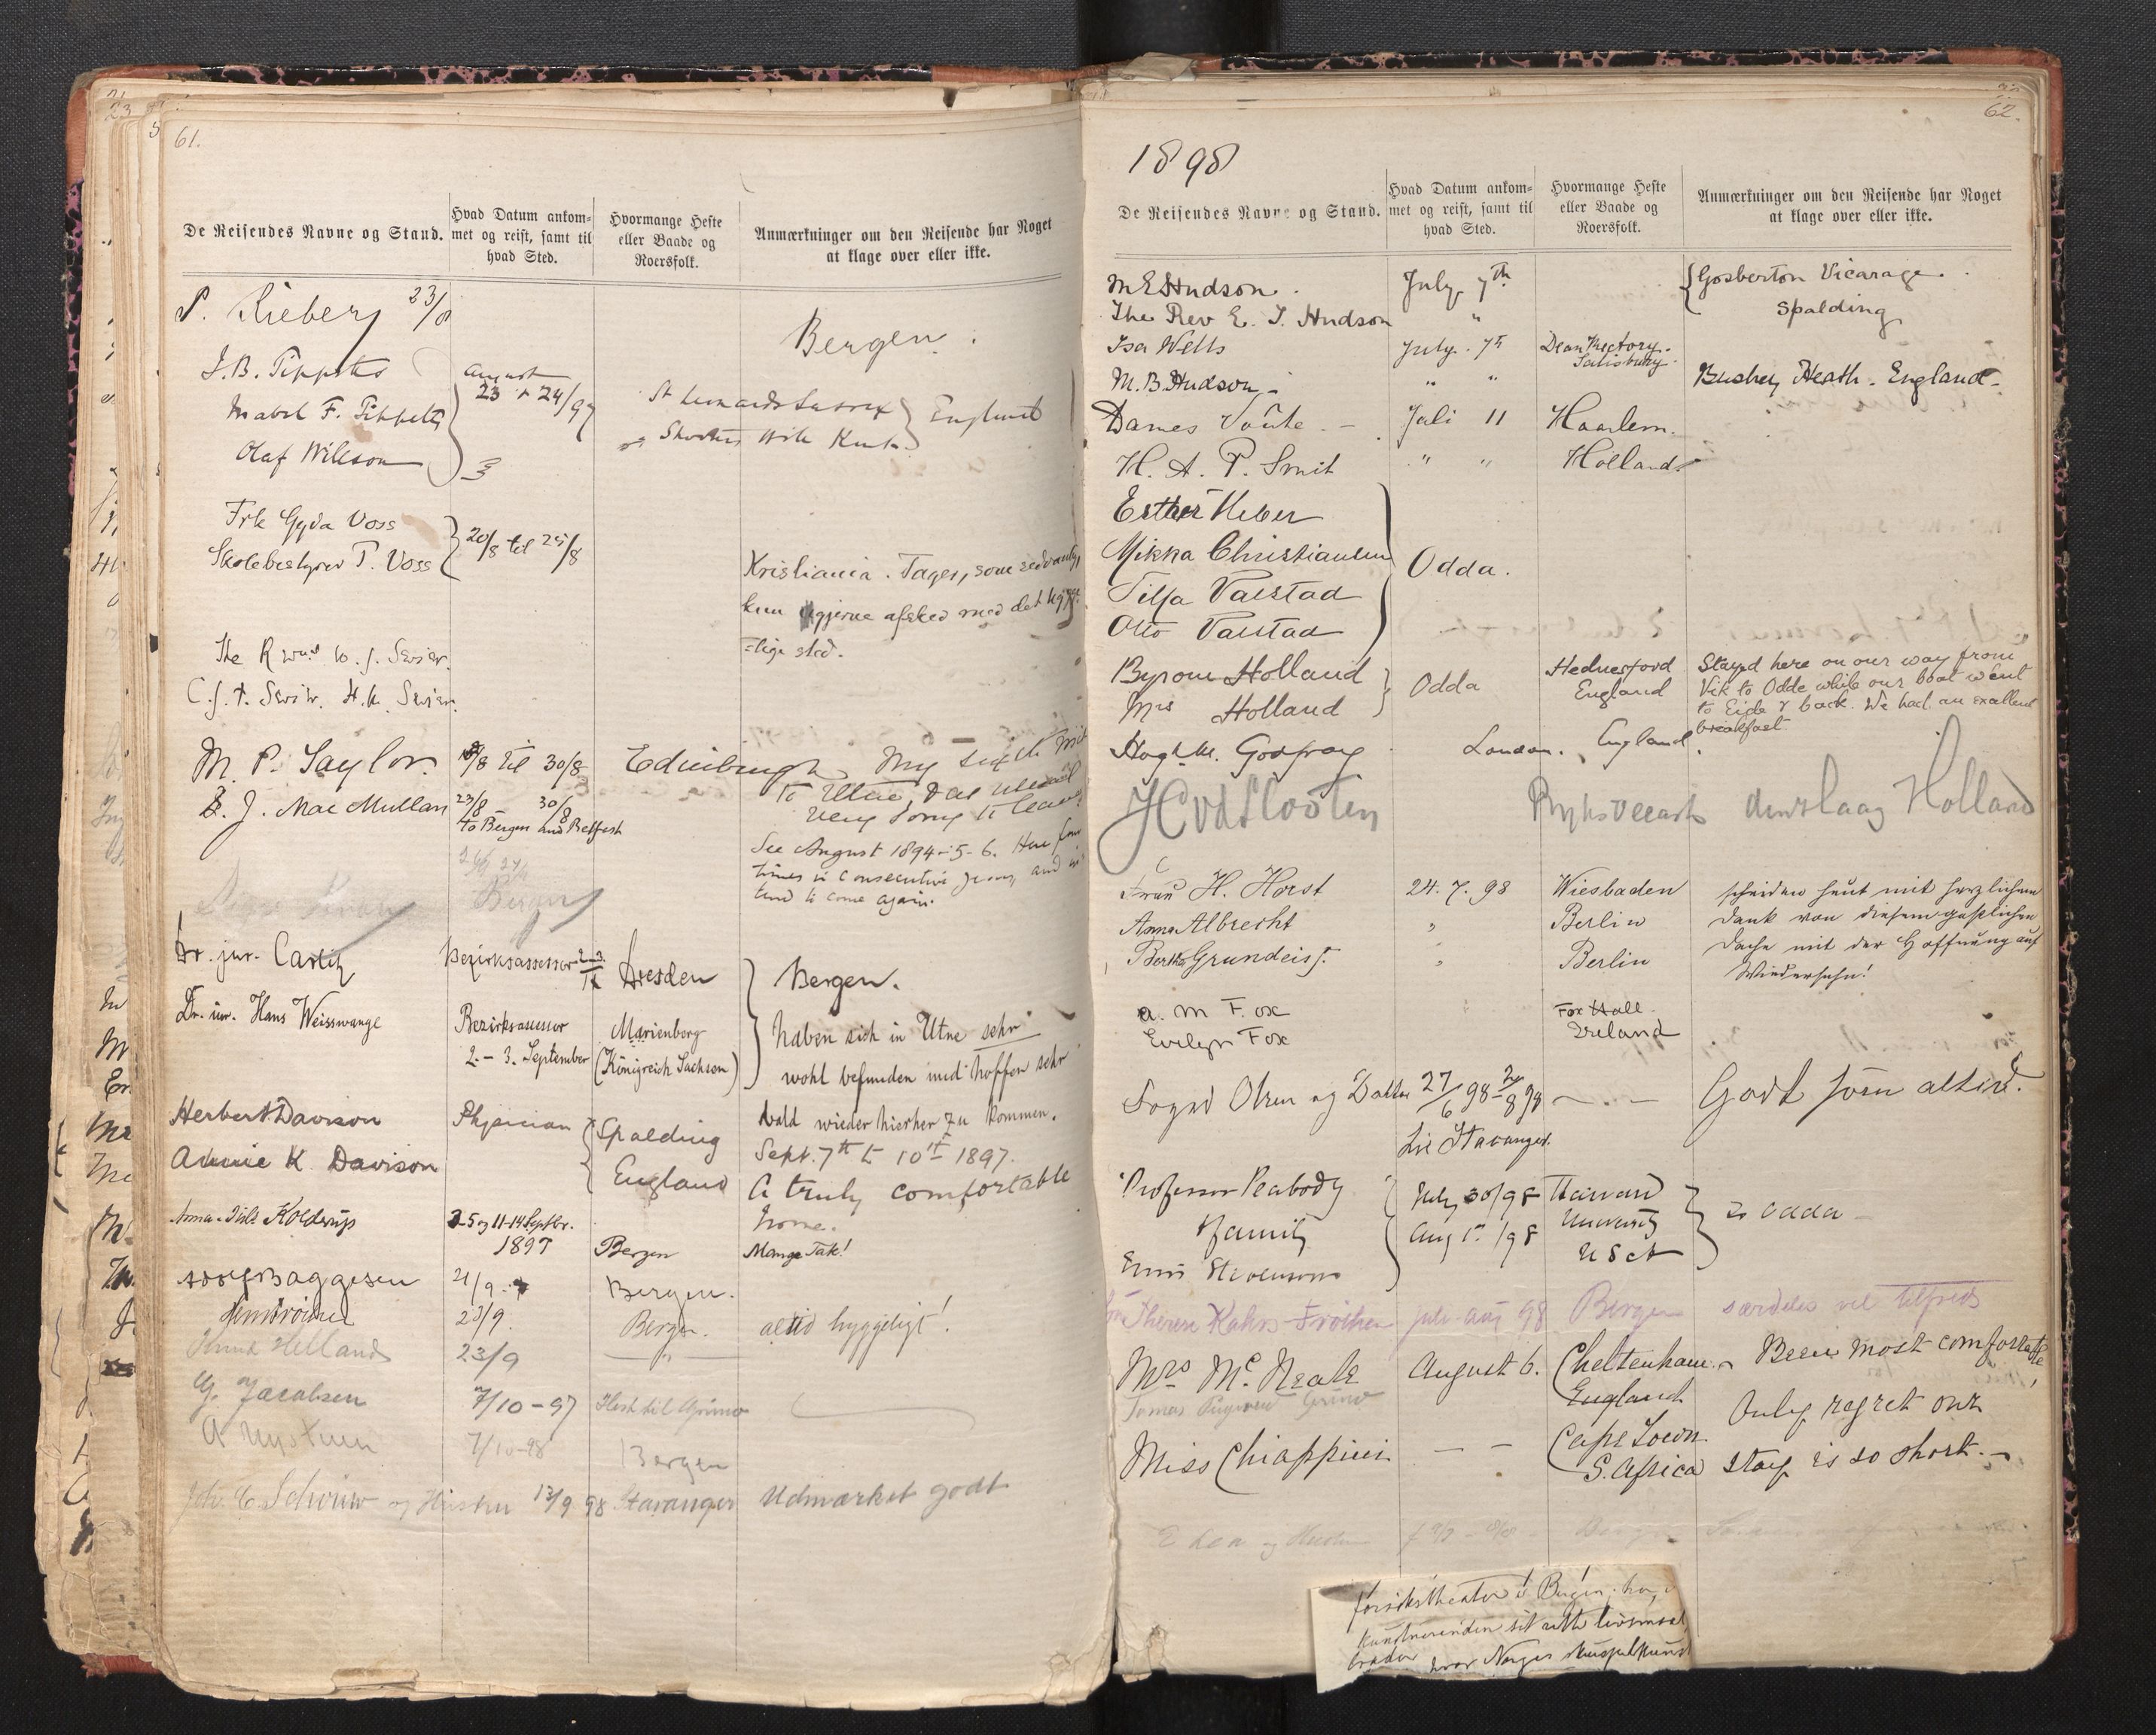 61.
De Reisendes Navne og Stand.
Hvad Datum ankom-
met og reist, samt til
hvad Sted.
Hvormange Heste
eller Baade og
Roersfolk.
Anmærkninger om den Reisende har Noget
at klage over eller ikke.
P. Rieber 23/8
Bergen.
J.B. Tippetts
August
23 + 24/97
Mabel F. Tippetts
St Leonards Sussex
England
Olaf Wilson
Frk Gyda Voss
20/8 til 25/8
Skolebestyrer P. Voss
Kristiania. Tager, som sedvanlig,
kun ugjerne afsked med det hygge
=lige sted.
The Revd W. J. Sevier.
C.J.T. Sevier. H.K. Sevier.
M. P. Taylor. 18/8 til 30/8 Edinburgh. My sixth
to Utne, & as usual
very sorry to leave
J. Mac Mullan 23/8 – 30/8
to Bergen and Belfast
See August 1894-5-6. Here four
times in consecutive years, and in
tend to come again.
Bergen
Dr. jur. Carlitz Bezirksassessor 2-3/IX Dresden
Bergen.
Dr. jur. Hans Weisswange
Bezirksassessor
2.-3. September
Marienberg
(Königreich Sachsen)
haben sich in Utne sehr
wohl befunden und hoffen sehr
bald wieder hierher zu kommen.
Herbert Davison Physician Spalding
Sept. 7th to 10th 1897.
Annie K. Davison England
A truly comfortable
home.
Anna Kolderup 3-5 og 11-14 Septbr.
1897 Bergen Mange Tak!
Baggesen 21/9 Bergen.
23/9. Bergen. altid hyggeligt!
Knud Helland 23/9 — " —
G. Jacobsen 7/10-97 Hest til Grimo
A Nystuen 7/10-98 Bergen
Joh. C. Schouw og Hustru 13/9 98 Stavanger Udmærket godt
62.
1898
De Reisendes Navne og Stand.
Hvad Datum ankom-
met og reist, samt til
hvad Sted.
Hvormange Heste
eller Baade og
Roersfolk.
Anmærkninger om den Reisende har Noget
at klage over eller ikke.
M E Hudson. July 7th Gosberton Vicarage.
The Rev E. T. Hudson " Spalding
Isa Wells July. 7th Dean Rectory.
Salisbury.
M. B. Hudson. " " Bushey Heath. England.
Dames Voûte. Juli 11 Haarlem.
H. A. P. Smit " " Holland.
Esther Heber
Mikka Christiansen
Odda.
Tilla Valstad
Otto Valstad
Byrom Holland
Mrs Holland
Odda
Hednesford
England
Stayed here on our way from
Vik to Odde while our boat went
to Eide & back. We had an excellent
breakfast
Hugh M. Godfray London. England.
H v d Slooten Holland
Frau H. Horst 24.7.98 Wiesbaden scheiden heut mit herzlichem
Anna Albrecht " Berlin Dank von diesem gastlichen
Bertha Grundeis. " Berlin Dache mit der Hoffnung auf
Wiedersehn!
A. M Fox
Fox Hall.
Evelyn Fox
Ireland
Sogsd Olsen og Datter 27/6 98 – 2/8 98 — " — Godt som altid.
Stavanger.
Professor Peabody July 30/98 Harvard
& family Aug 1st /98 University
USA
to Odda
Therese Kahrs-Frøchen juli-aug 98 Bergen særdeles vel tilfreds
Mrs McNeale August 6. Cheltenham. Been most comfortable,
England
Only regret our
Miss Chiappini — — Cape Town
S. Africa stay is so short.
og Hustru
kunstnerinden sit
hvor Norges skuespilkunst